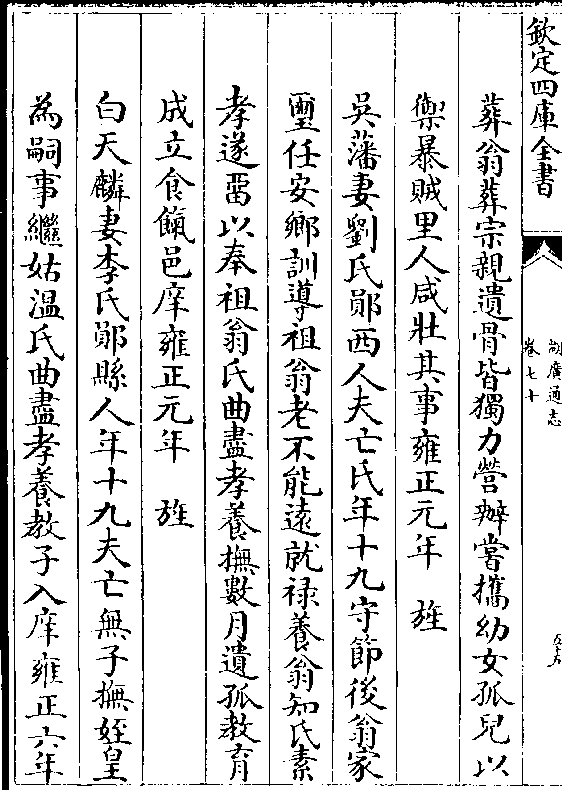 欽定四庫全書
湖廣通志
卷七十
葬翁葬宗親遺骨皆獨力營辦嘗攜幼女孤兒以
禦暴賊里人咸壯其事雍正元年 旌
吳藩妻劉氏鄖西人夫亡氏年十九守節後翁家
璽任安鄉訓導祖翁老不能遠就禄養翁知氏素
孝遂畱以奉祖翁氏曲盡孝養撫數月遺孤教育
成立食餼邑庠雍正元年 旌
白天麟妻李氏鄖縣人年十九夫亡無子撫姪皇
為嗣事繼姑溫氏曲盡孝養教子入庠雍正六年